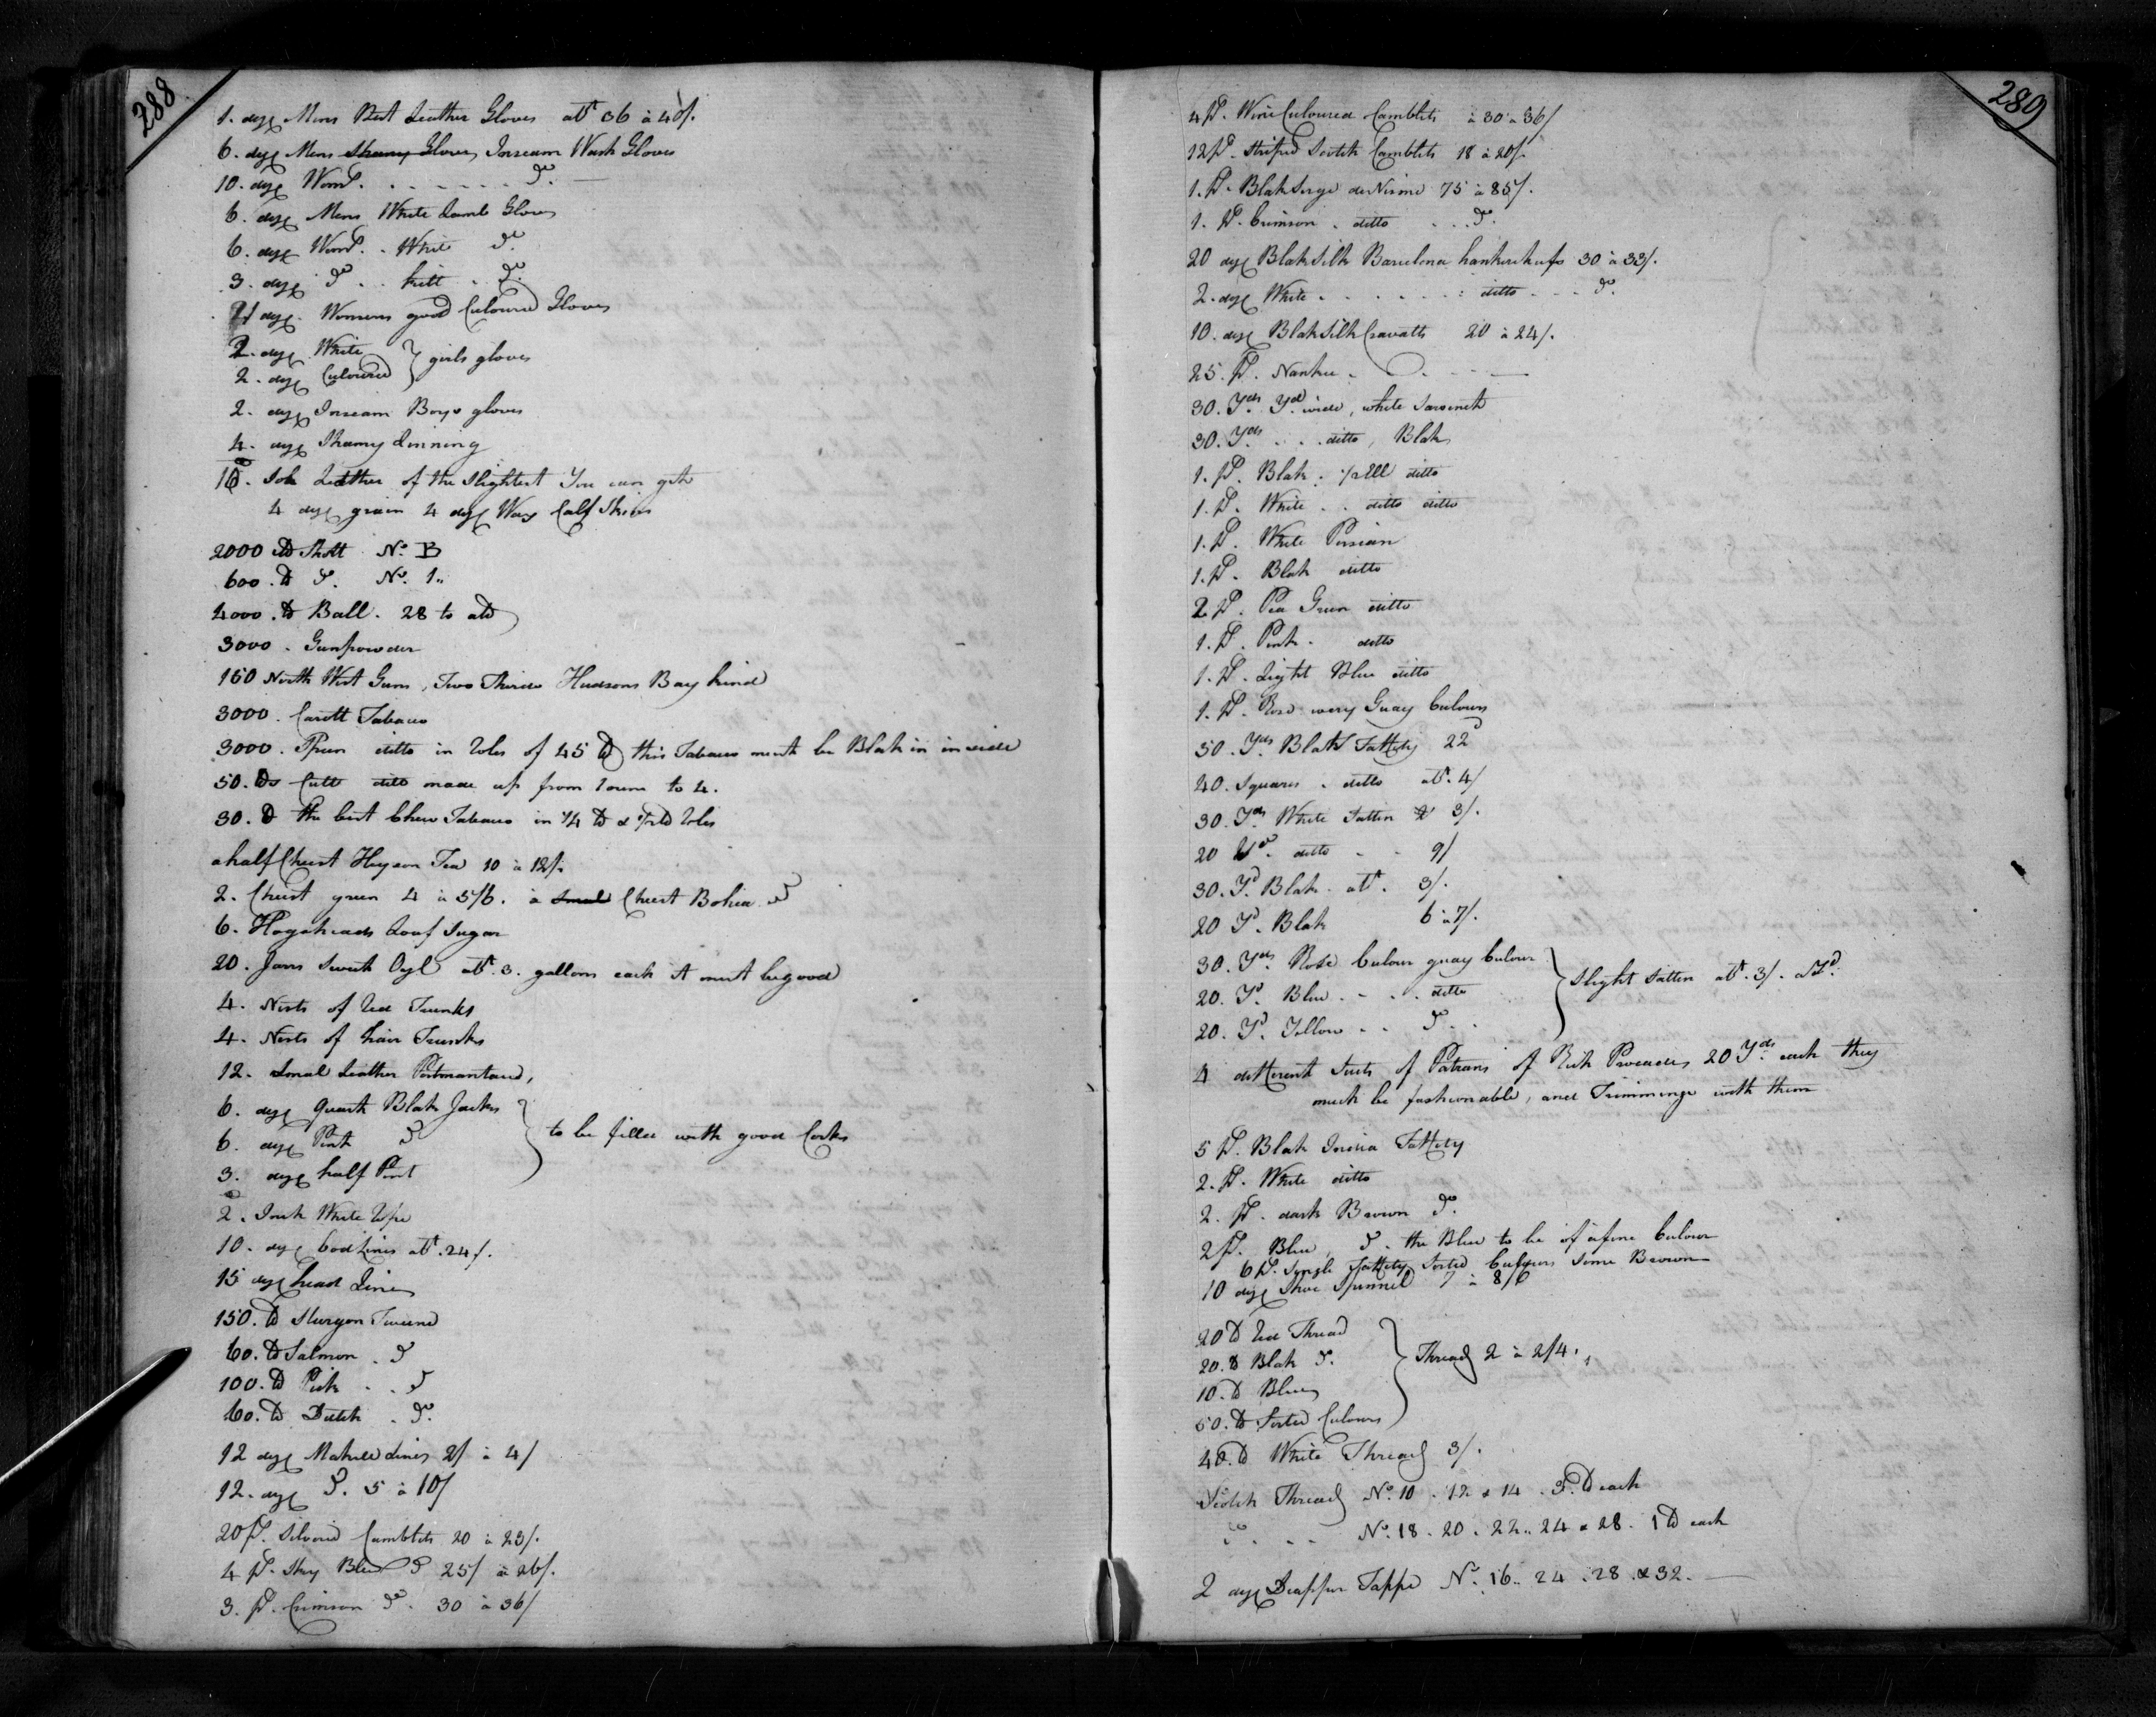 288
1. doz Mens Best Leather Gloves att 36 à 40/.
6. doz Mens Shamy Gloves Inseam Wash Gloves
10. doz Womns. . . . . . . . do. —
6. doz Mens White Lamb Gloves
6. doz Womns. . White do.
3. doz do . . kitt . do.
21 doz. Womens good Culoured Gloves
2. doz White
2. doz Culoured } girls gloves
2. doz Inseam Boys gloves
4. doz Shamy Linning
10. Sole Leather of the Slightest You can get
4 doz grain 4 doz Wax Calf Skins
2000 lb Shott No. B
600. lb do. No. 1..
4000. lb Ball. 28 to a lb
3000. Gunpowder
150 North West Guns, Two Thirds Hudsons Bay kind
3000. Carott Tabaco
3000. Spun ditto in Roles of 45 lb this Tabaco must be Blak in inside
50. lbs Cutt ditto made up from 1 ounce to 4.
30. lb the best Chew Tabaco in 1/4 lb & 1/2 lb Roles
a half Chest Hyson Tea 10 à 12/.
2. Chest green 4 à 5/6. à Smal Chest Bohea do
6. Hogsheads Loaf Sugar
20. Jars Sweet Oyl att. 3. gallons each it must be good
4. Nests of Red Trunks
4. Nests of hair Trunks
12. Smal Leather Portmantaus,
6. doz quart Blak Jacks
6. doz Pint do
3. doz half Pint } to be filled with good Corks
2. Inch White Rope
10. doz Cod Lines att. 24/.
15 doz head Lines
150. lb Sturgon Tweene
60. lb Salmon . do
100. lb Pick . . do
60. lb Dutch . do.
12 doz Makrell Lines 2/ à 4/
12. doz do. 5 à 10/
20 Ps. Silvered Camblets 20 à 23/.
4 Ps. Sky Blue do 25/ à 26/.
3. Ps. Crimson do. 30 à 36/
289
4 Ps. Wine Culoured Camblets à 30 à 36/
12 Ps. Striped Scotch Camblets 18 à 20/.
1. Ps. Blak Serge de Nisme 75 à 85/.
1. Ps. Crimson . ditto . . . do.
20 doz Blak Silk Barcelona hankerchufs 30 à 33/.
2. doz White . . . . . . . ditto . . . do.
10. doz Blak Silk Cravatts 20 à 24/.
25. Ps. Nankee .
30. Yds. Yd. wide, white Sarsenet
30. Yds. . . . ditto, Blak
1. Ps. Blak . 1/2 Ell ditto
1. Ps. White . . ditto ditto
1. Ps. White Persian
1. Ps. Blak ditto
2 Ps. Pea Green ditto
1. Ps. Pink . ditto
1. Ps. Light Blue ditto
1. Ps. Rose wery Guay Culours
50. Yds Blak Taffety 22d
40. Squares . ditto att. 4/
30. Yds White Sattin 3/.
20 Yd. ditto . . 9/
30. Yd. Blak . att. 3/.
20 Yd. Blak 6 à 7/.
30. Yds. Rose Culour guay Culour
20. Yd. Blue . . . . ditto
20. Yd. Yellow . . do . . } Slight Sattin att. 3/. a Yd.
4 different Suts of Patrans of Rich Procades 20 Yds. each they
must be fashionable, and Trimmings with them
5 Ps. Blak India Taffety
2. Ps. White ditto
2. Ps. dark Brown do.
2 Ps. Blue, do. the Blue to be of a fine Culour
6 Ps. Single Taffety Sorted Culours Some Brown
10 doz Shoe Spunnel 7 à 8/6
20 lb Red Thread
20. lb Blak do.
10. lb Blue
50. lb Sorted Culours } Thread 2 à 2/4.
40. lb White Thread 3/.
Scotch Thread No. 10 . 12 & 14 . 3. lb each
do . . . No. 18 . 20 . 22 .. 24 & 28 . 1 lb each
2 doz Diapper Tappe No. 16 .. 24 . 28 . & 32 . —